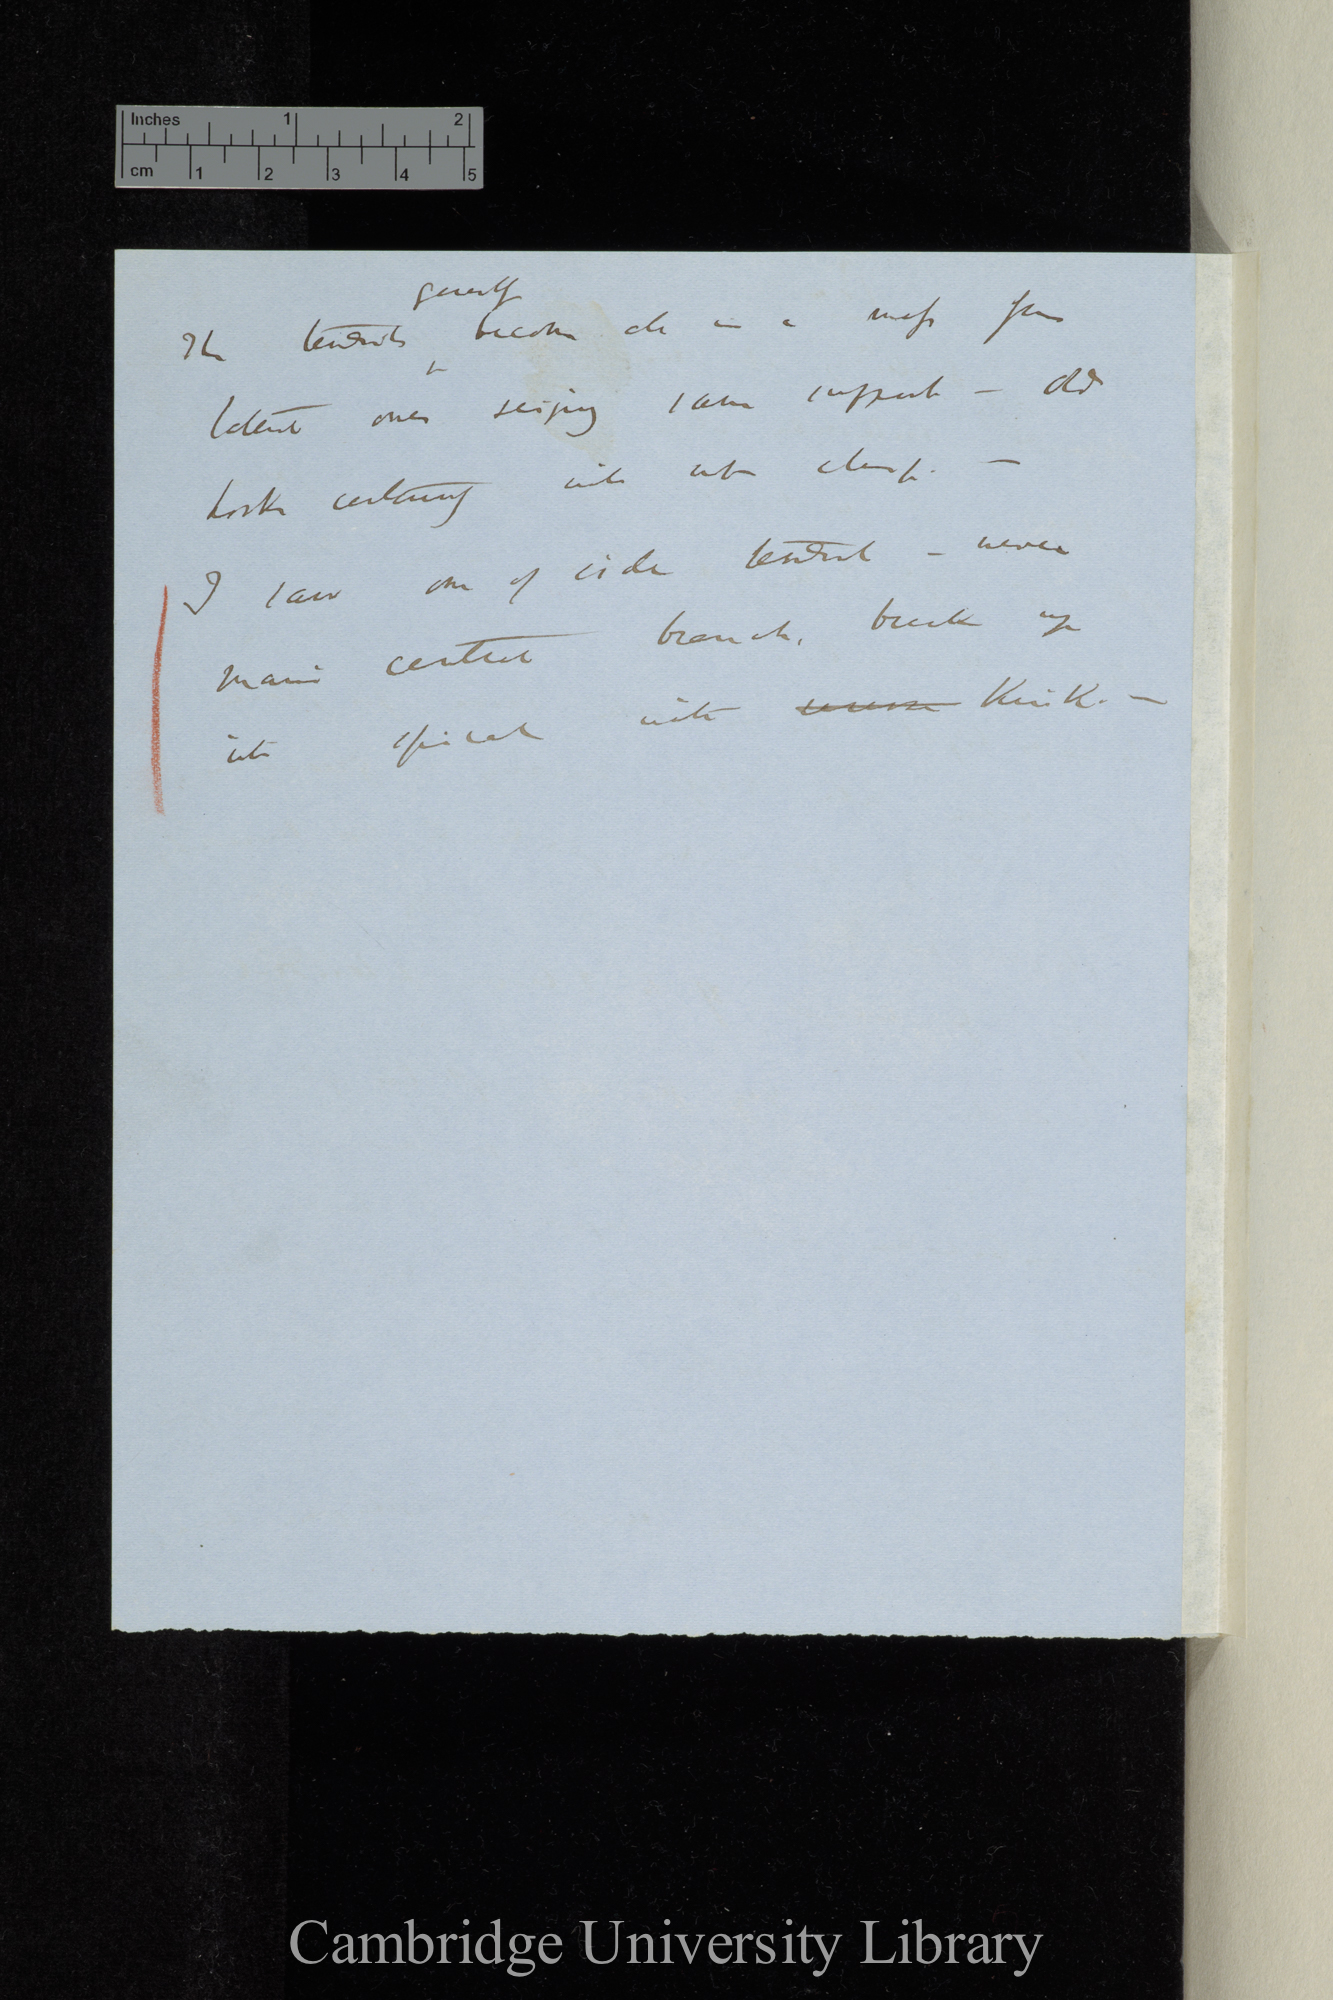 Inches 1 2
cm 1 2 3 4 5
generally
The tendrils become all in a mass from
latent ones seizing same support — old
hooks contracting into
I saw one of side tendril — never
main central branch, break up
into spiral with Kink. —
Cambridge University Library